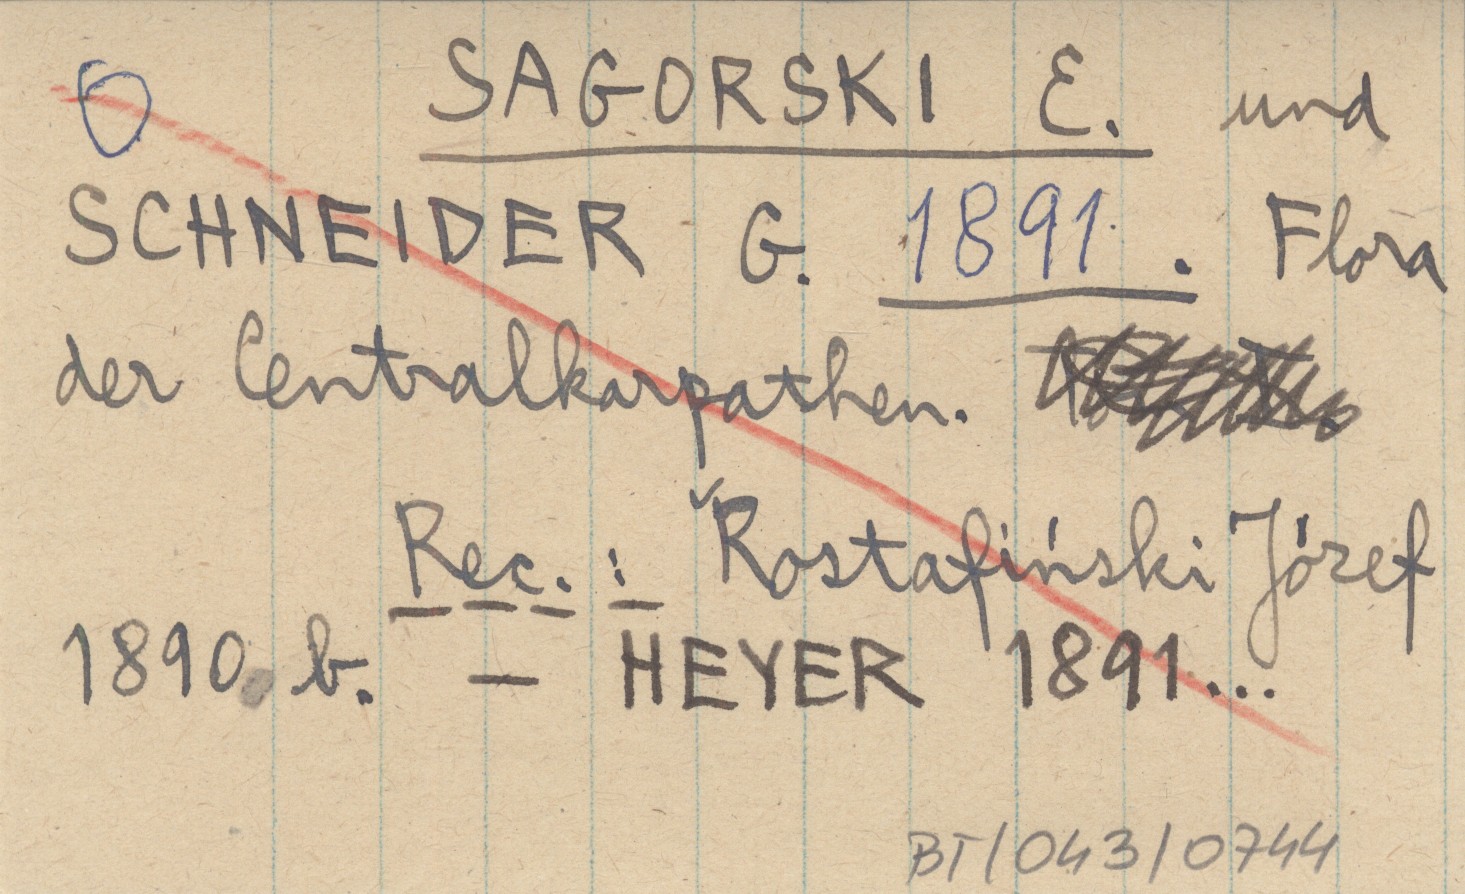 O SAGORSKI E. und
SCHNEIDER G. 1891. Flora
der Centralkarpathen.
Rec.: Rostafiński Józef
1890 b. — HEYER 1891...
BT/043/0744